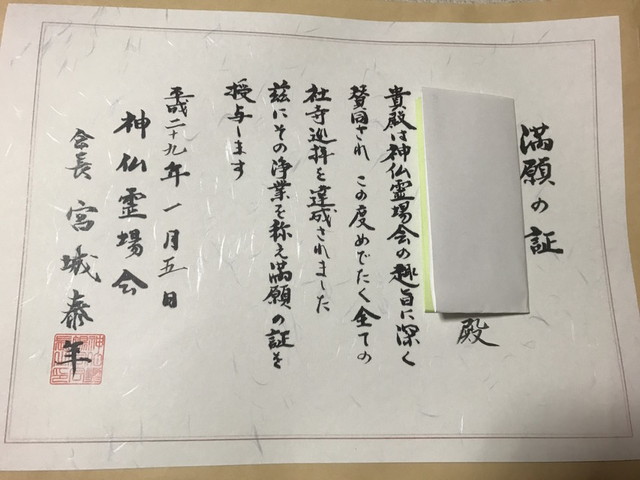 満願の証
殿
貴殿は神仏霊場会の趣旨に深く
賛同され この度めでたく全ての
社寺巡拝を達成されました
茲にその浄業を称え満願の証を
授与します
平成二十九年一月五日
神仏霊場会
会長 宮城泰年